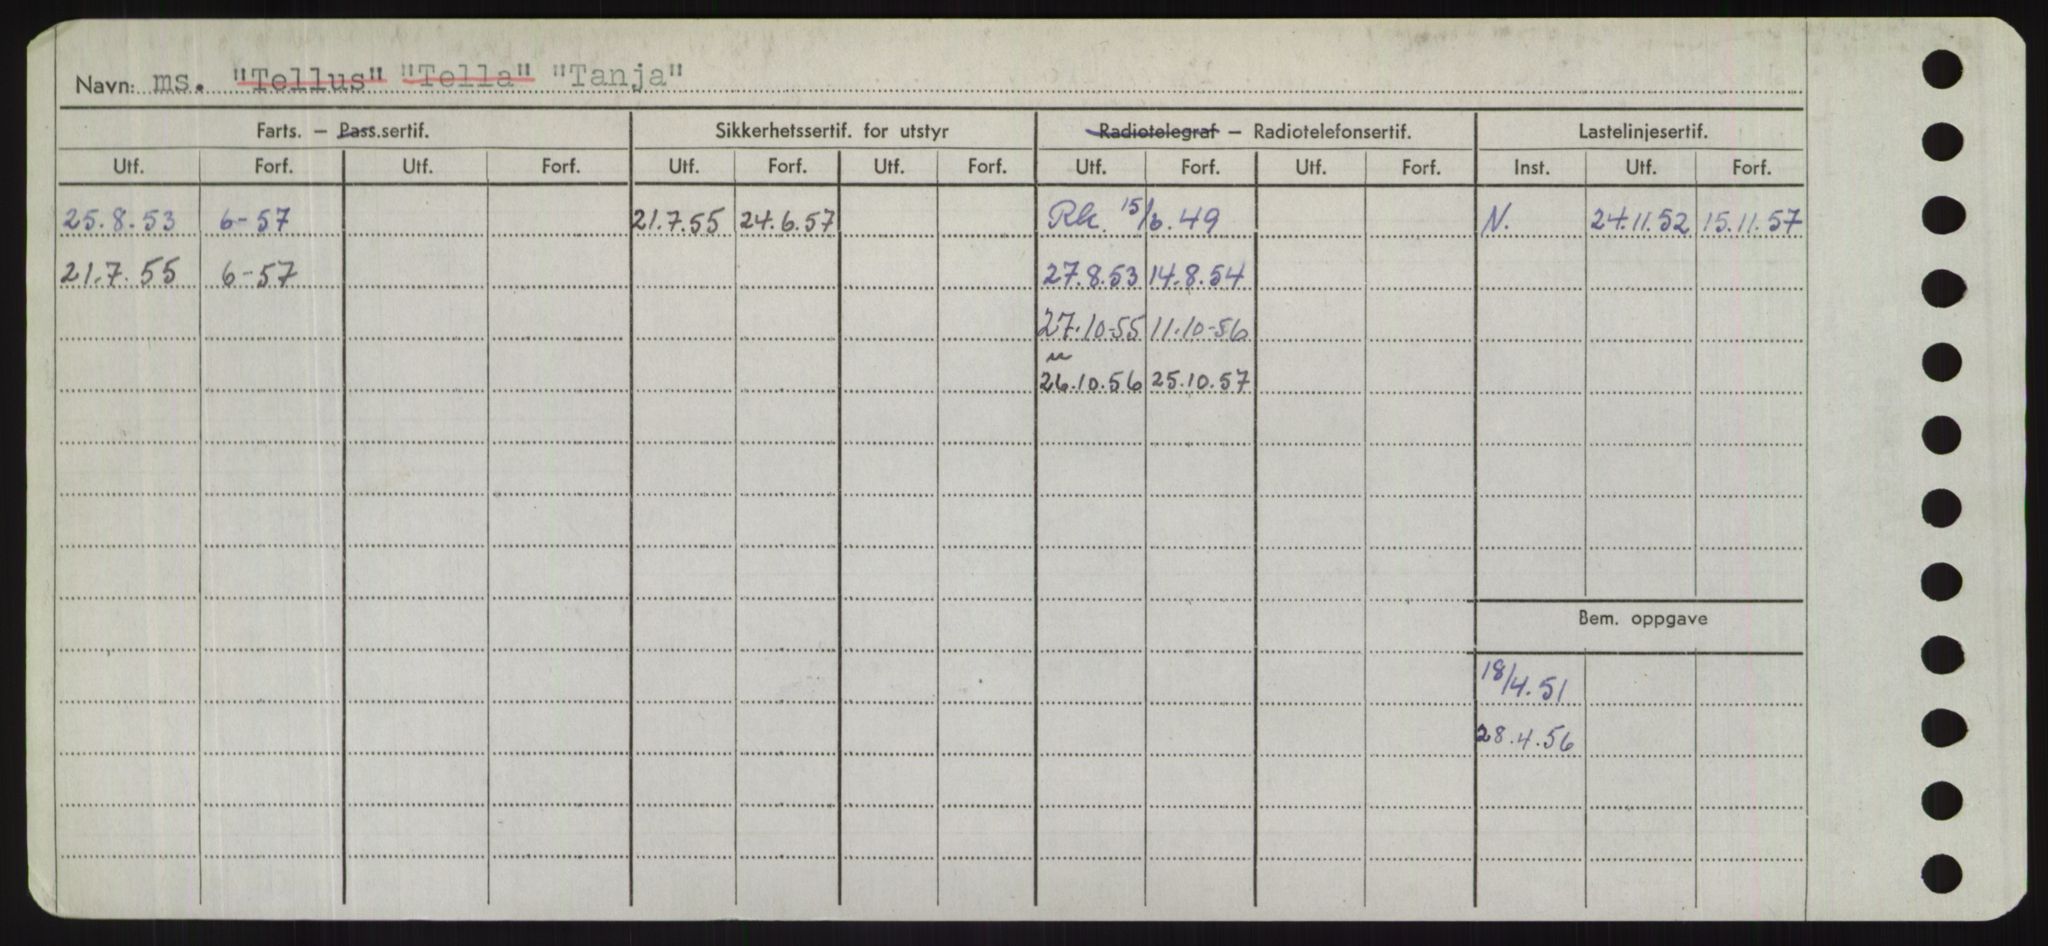 Navn: ms. "Tellus" "Tella" "Tanja"
Farts. — Pass.sertif. Sikkerhetssertif. for utstyr Radiotelegraf — Radiotelefonsertif. Lastelinjesertif.
Utf. Forf. Utf. Forf. Utf. Forf. Utf. Forf. Utf. Forf. Utf. Forf. Inst. Utf. Forf.
25.8.53 6-57 21.7.55 24.6.57 Rk. 15/6.49 N. 24.11.52 15.11.57
21.7.55 6-57 27.8.53 14.8.54
27.10-55 11.10-56
26.10.56 25.10.57
Bem. oppgave
18/4.51
28.4.56